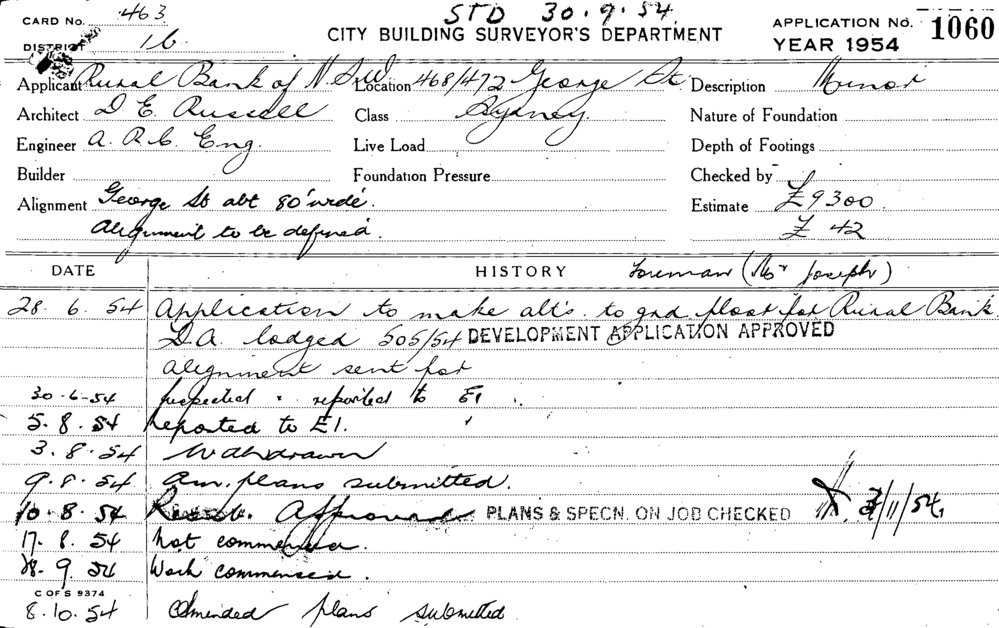 CARD No. 463 STD 30.9.54. APPLICATION No. 1060
DISTRICT 16 CITY BUILDING SURVEYOR'S DEPARTMENT YEAR 1954
Applicant Rural Bank of N.S.W Location 468/472 George St Description Minor
Architect D E. Russell Class Sydney Nature of Foundation
Engineer A. R. C. Eng. Live Load Depth of Footings
Builder Foundation Pressure Checked by
Alignment George St abt 80' wide. Estimate £9300
Alignment to be defined. £ 42
DATE HISTORY Foreman (Mr Joseph)
28. 6. 54 Application to make alt's. to gnd floor for Rural Bank
D.A. lodged 505/54 DEVELOPMENT APPLICATION APPROVED
alignment sent for
30-6-54 Inspected & reported to E1
5. 8. 54 Reported to E1.
3. 8. 54 Withdrawn
9. 8. 54 Am. plans submitted.
10. 8. 54 Approved PLANS & SPECN. ON JOB CHECKED /11/54.
17. 8. 54 Not commenced.
28. 9. 54 Work commenced.
C OF S 9374
8. 10. 54 Amended plans submitted